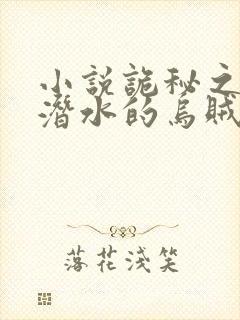 小說詭秘之
潛水的烏賊
落花淺笑